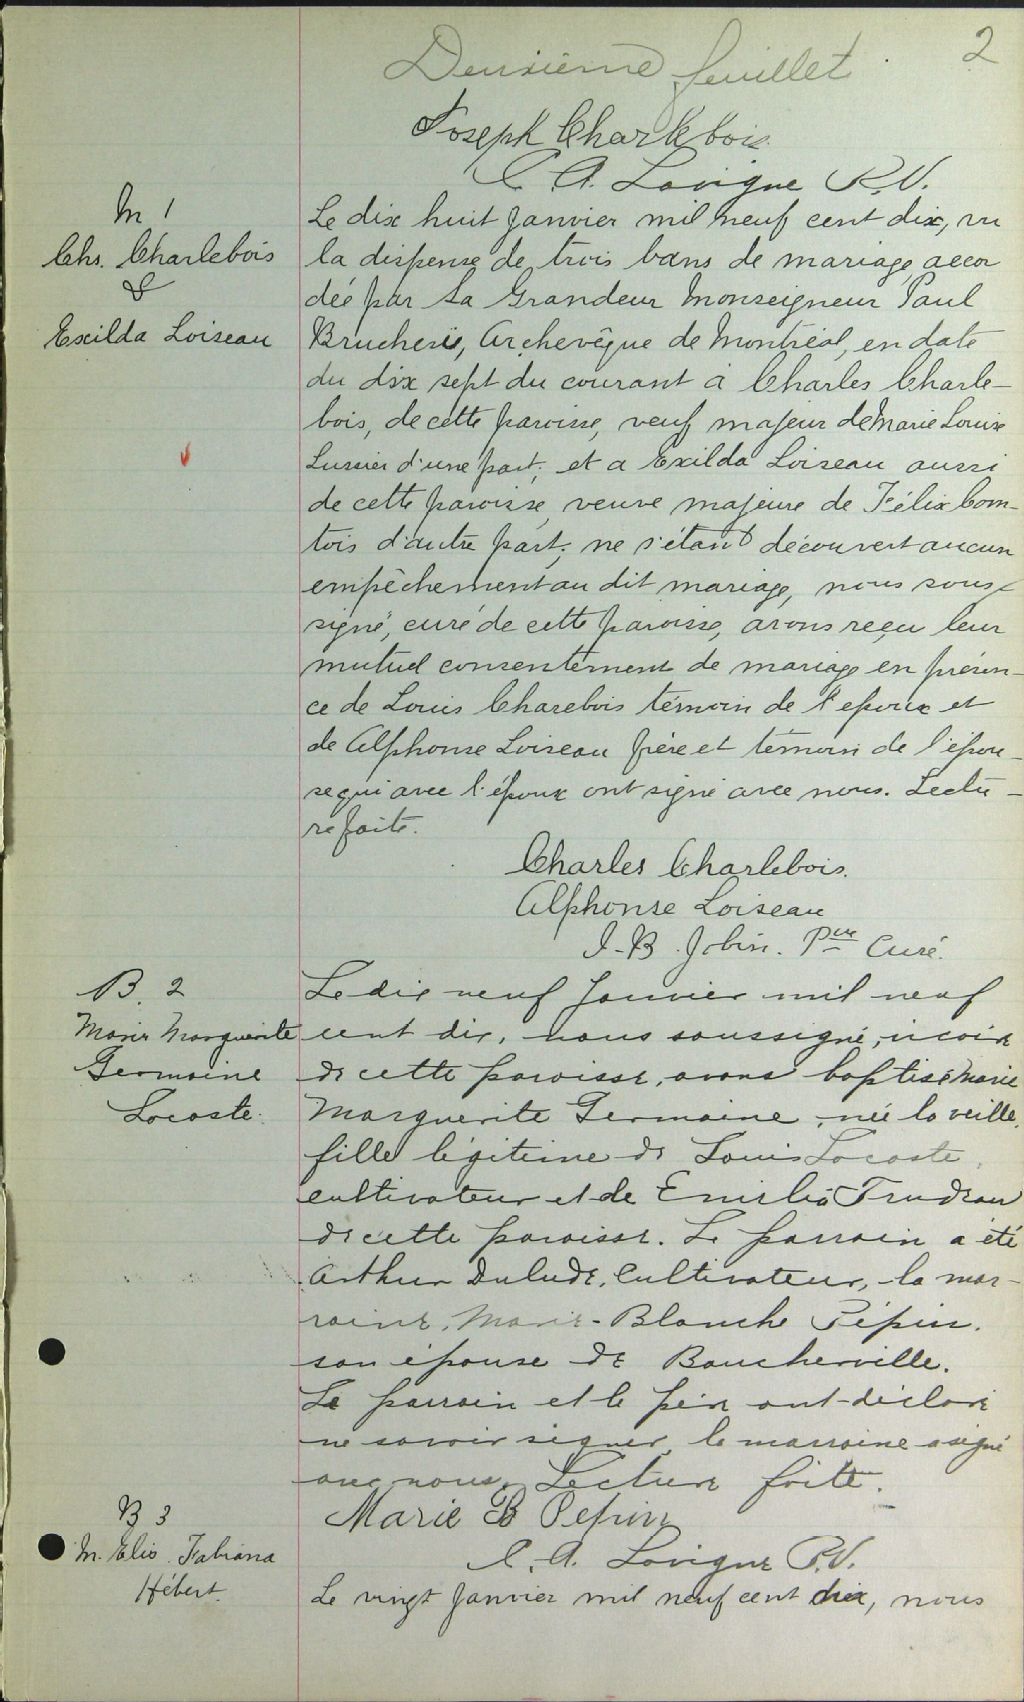 Deuxième feuillet 2
Joseph Charlebois
C. A. Lavigne P.V.
M 1
Chs. Charlebois
&
Exilda Loiseau
Le dix huit Janvier mil neuf cent dix, vu
la dispense de trois bans de mariage accor
dée par Sa Grandeur Monseigneur Paul
Bruchesi, Archevêque de Montréal, en date
du dix sept du courant à Charles Charle-
bois, de cette paroisse, veuf majeur de Marie Louise
Lussier d'une part, et a Exilda Loiseau aussi
de cette paroisse, veuve majeure de Félix Com-
tois d'autre part; ne s'étant découvert aucun
empêchement au dit mariage, nous sous-
signé, curé de cette paroisse, avons reçu leur
mutuel consentement de mariage en présen-
ce de Louis Charebois témoin de l'epoux et
de Alphonse Loiseau frère et témoin de l'épou-
se qui avec l'époux ont signé avec nous. Lectu-
re faite.
Charles Charlebois.
Alphonse Loiseau
J-B. Jobin. Ptre Curé.
B. 2
Marie Marguerite
Germaine
Lacoste.
Le dix neuf Janvier mil neuf
cent dix, nous soussigné, vicaire
de cette paroisse, avons baptisé Marie
Marguerite Germaine, née la veille,
fille légitime de Louis Lacoste,
cultivateur et de Emélia Trudeau
de cette paroisse. Le parrain a été
Arthur Dulude, Cultivateur, la mar-
raine, Marie-Blanche Pépin,
son épouse de Boucherville.
Le parrain et le père ont déclaré
ne savoir signer, la marraine a signé
avec nous. Lecture faite.
Marie B Pepin
C. A. Lavigne P.V.
B 3
M. Elis. Fabiana
Hébert.
Le vingt Janvier mil neuf cent dix, nous